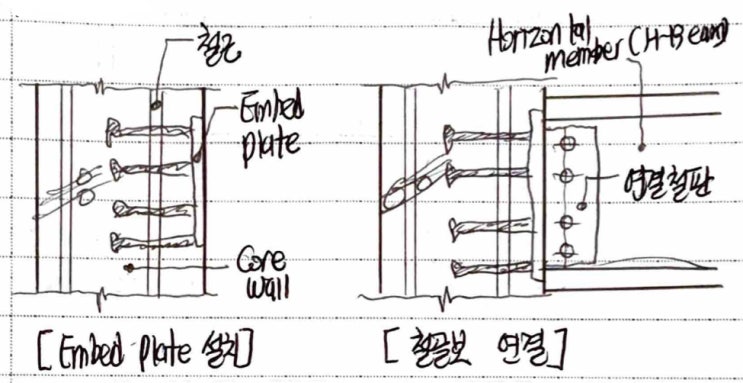 철근
Embed
plate
Core
wall
[Embed plate 설치]
Horizontal
member (H-Beam)
연결철판
[철골보 연결]